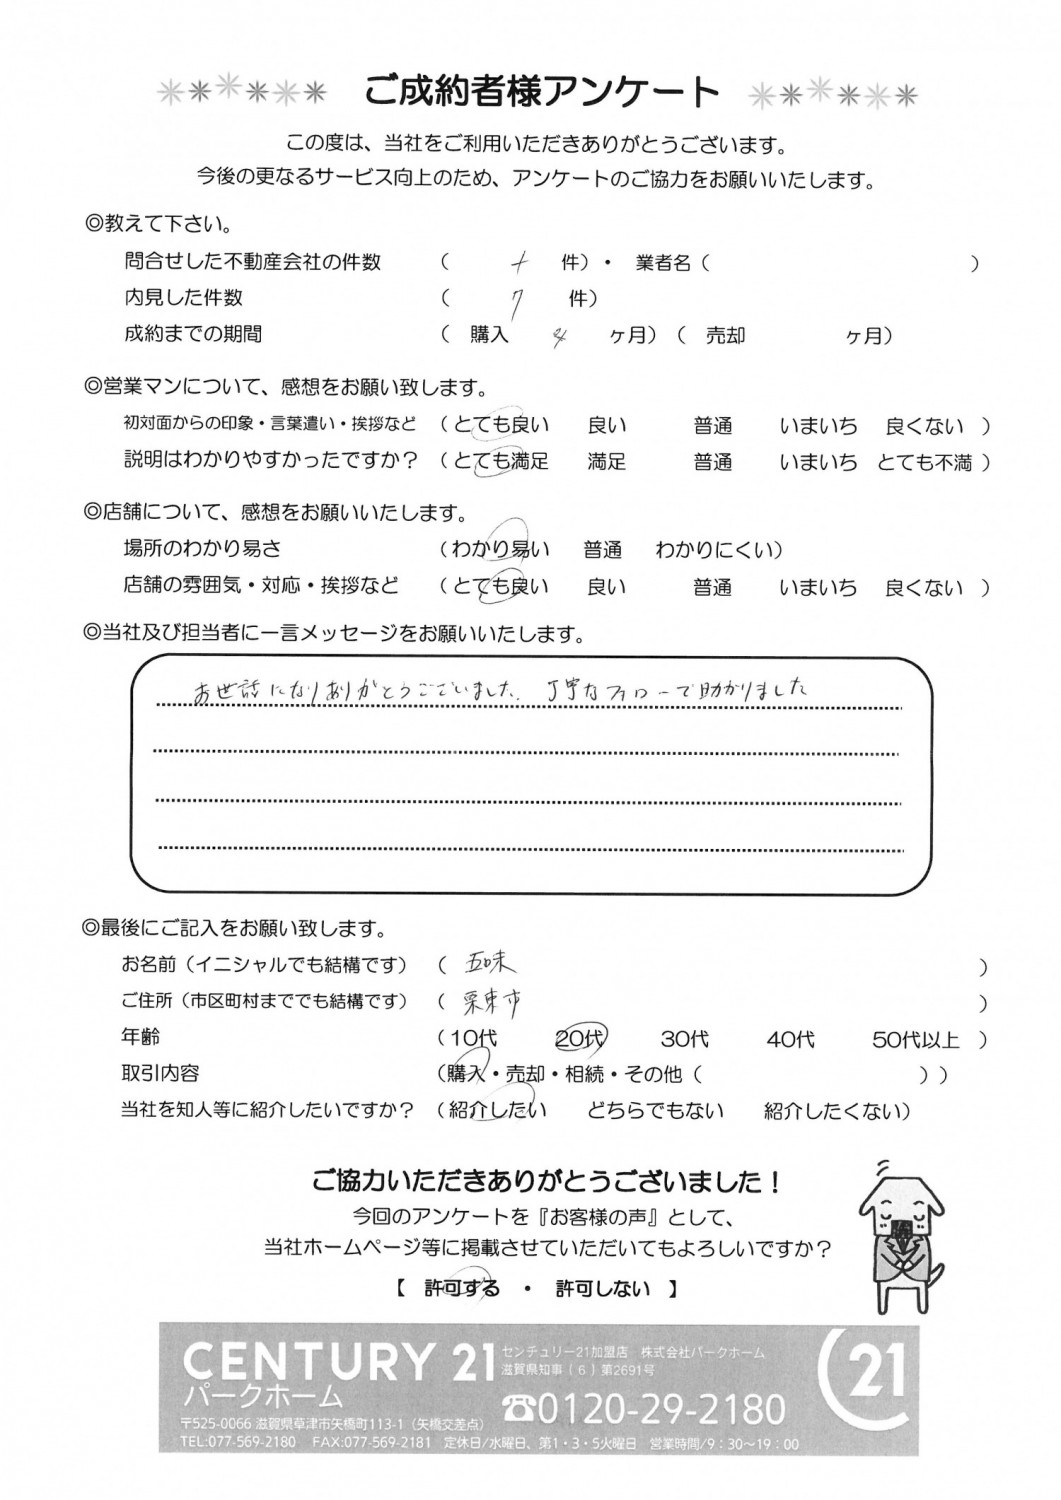 ご成約者様アンケート
この度は、当社をご利用いただきありがとうございます。
今後の更なるサービス向上のため、アンケートのご協力をお願いいたします。
◎教えて下さい。
問合せした不動産会社の件数 ( 件)・ 業者名 ( )
内見した件数 ( 7 件)
成約までの期間 ( 購入 4 ヶ月) ( 売却 ヶ月)
◎営業マンについて、感想をお願い致します。
初対面からの印象・言葉遣い・挨拶など (とても良い 良い 普通 いまいち 良くない )
説明はわかりやすかったですか？ (とても満足 満足 普通 いまいち とても不満 )
◎店舗について、感想をお願いいたします。
場所のわかり易さ (わかり易い 普通 わかりにくい)
店舗の雰囲気・対応・挨拶など (とても良い 良い 普通 いまいち 良くない )
◎当社及び担当者に一言メッセージをお願いいたします。
お世話になりありがとうございました. 丁寧なフォローで助かりました
◎最後にご記入をお願い致します。
お名前（イニシャルでも結構です） ( 五味 )
ご住所（市区町村まででも結構です） ( 栗東市 )
年齢 (10代 20代 30代 40代 50代以上 )
取引内容 (購入・売却・相続・その他 ( ) )
当社を知人等に紹介したいですか？ (紹介したい どちらでもない 紹介したくない)
ご協力いただきありがとうございました！
今回のアンケートを『お客様の声』として、
当社ホームページ等に掲載させていただいてもよろしいですか？
【 許可する ・ 許可しない 】
CENTURY 21 センチュリー21加盟店 株式会社パークホーム
滋賀県知事（６）第2691号
パークホーム ☎0120-29-2180
〒525-0066 滋賀県草津市矢橋町113-1（矢橋交差点）
TEL:077-569-2180 FAX:077-569-2181 定休日/水曜日、第1・3・5火曜日 営業時間/9：30〜19：00
21